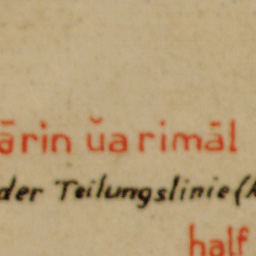 ārin ŭa rimāl
der Teilungslinie (
half